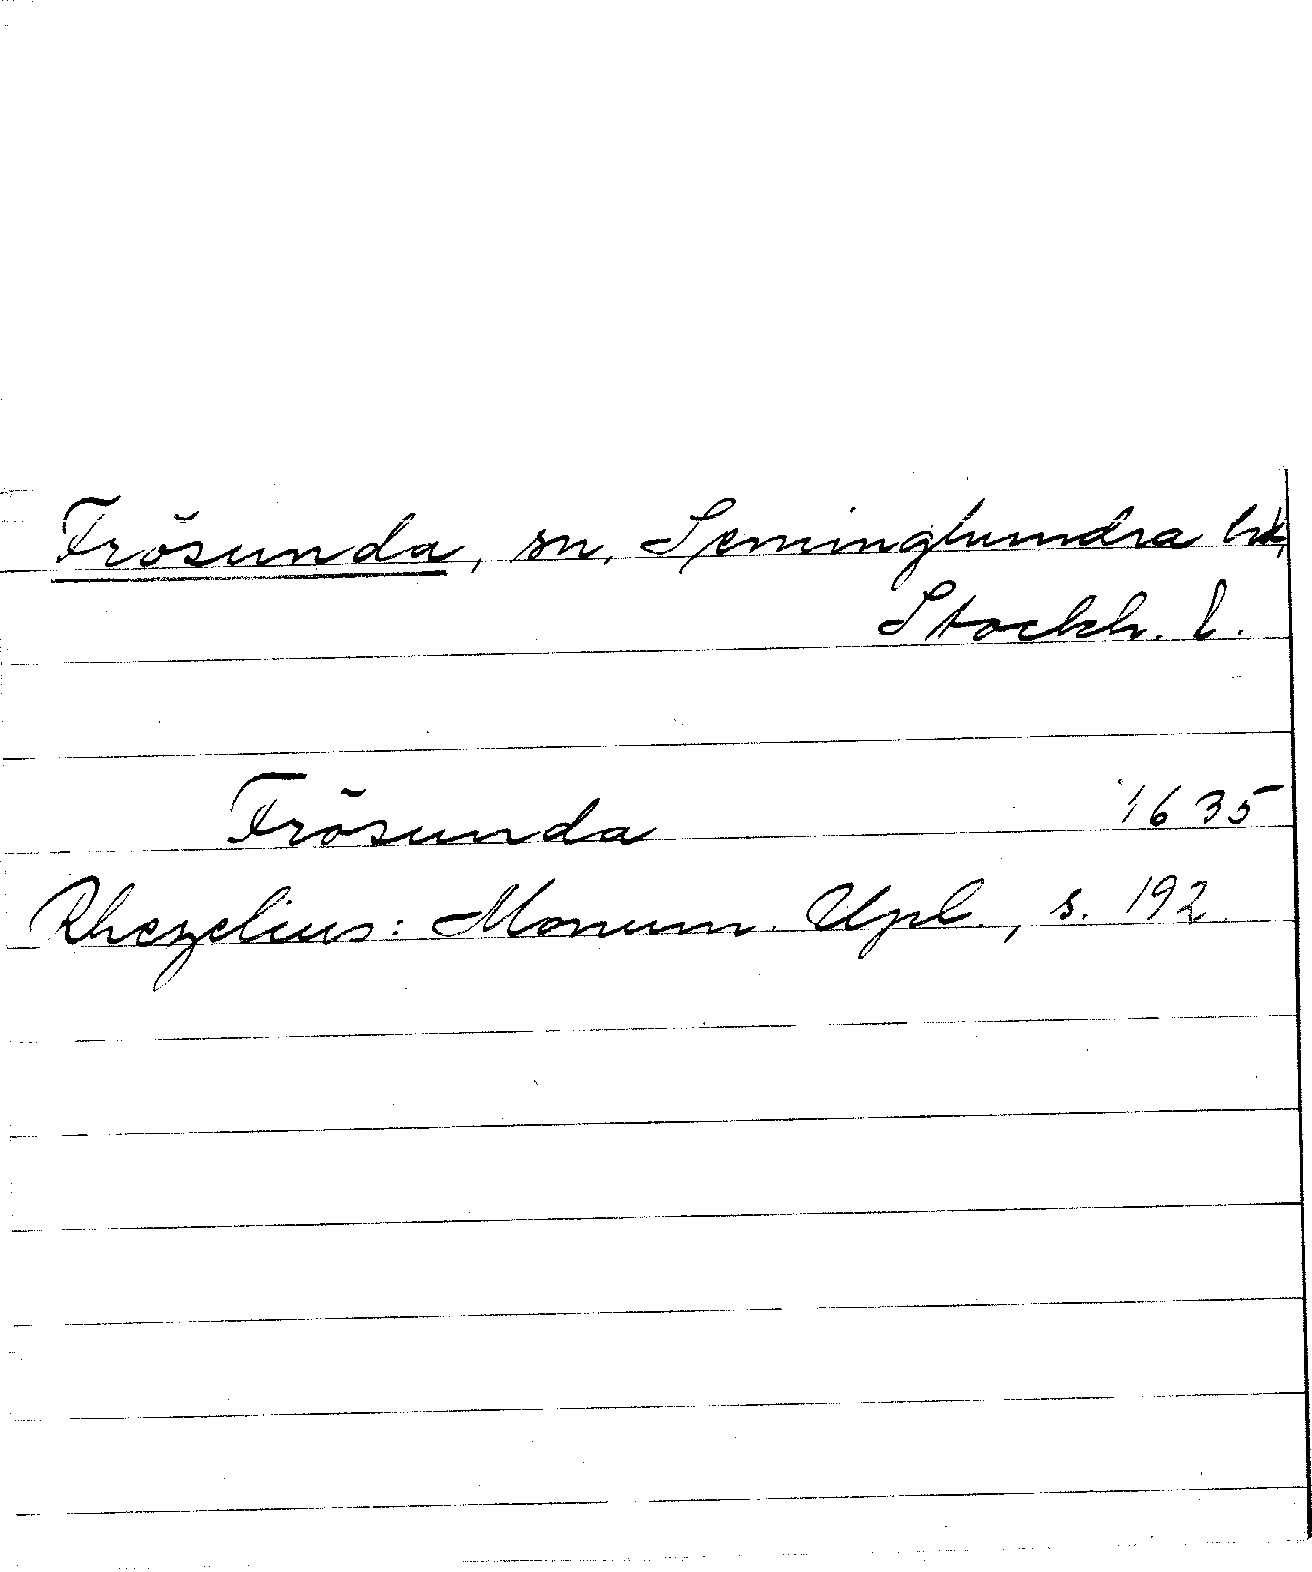 Frösunda, sn, Seminghundra hd,
Stockh. l.
Frösunda 1635
Rhezelius: Monum. Upl., s. 192